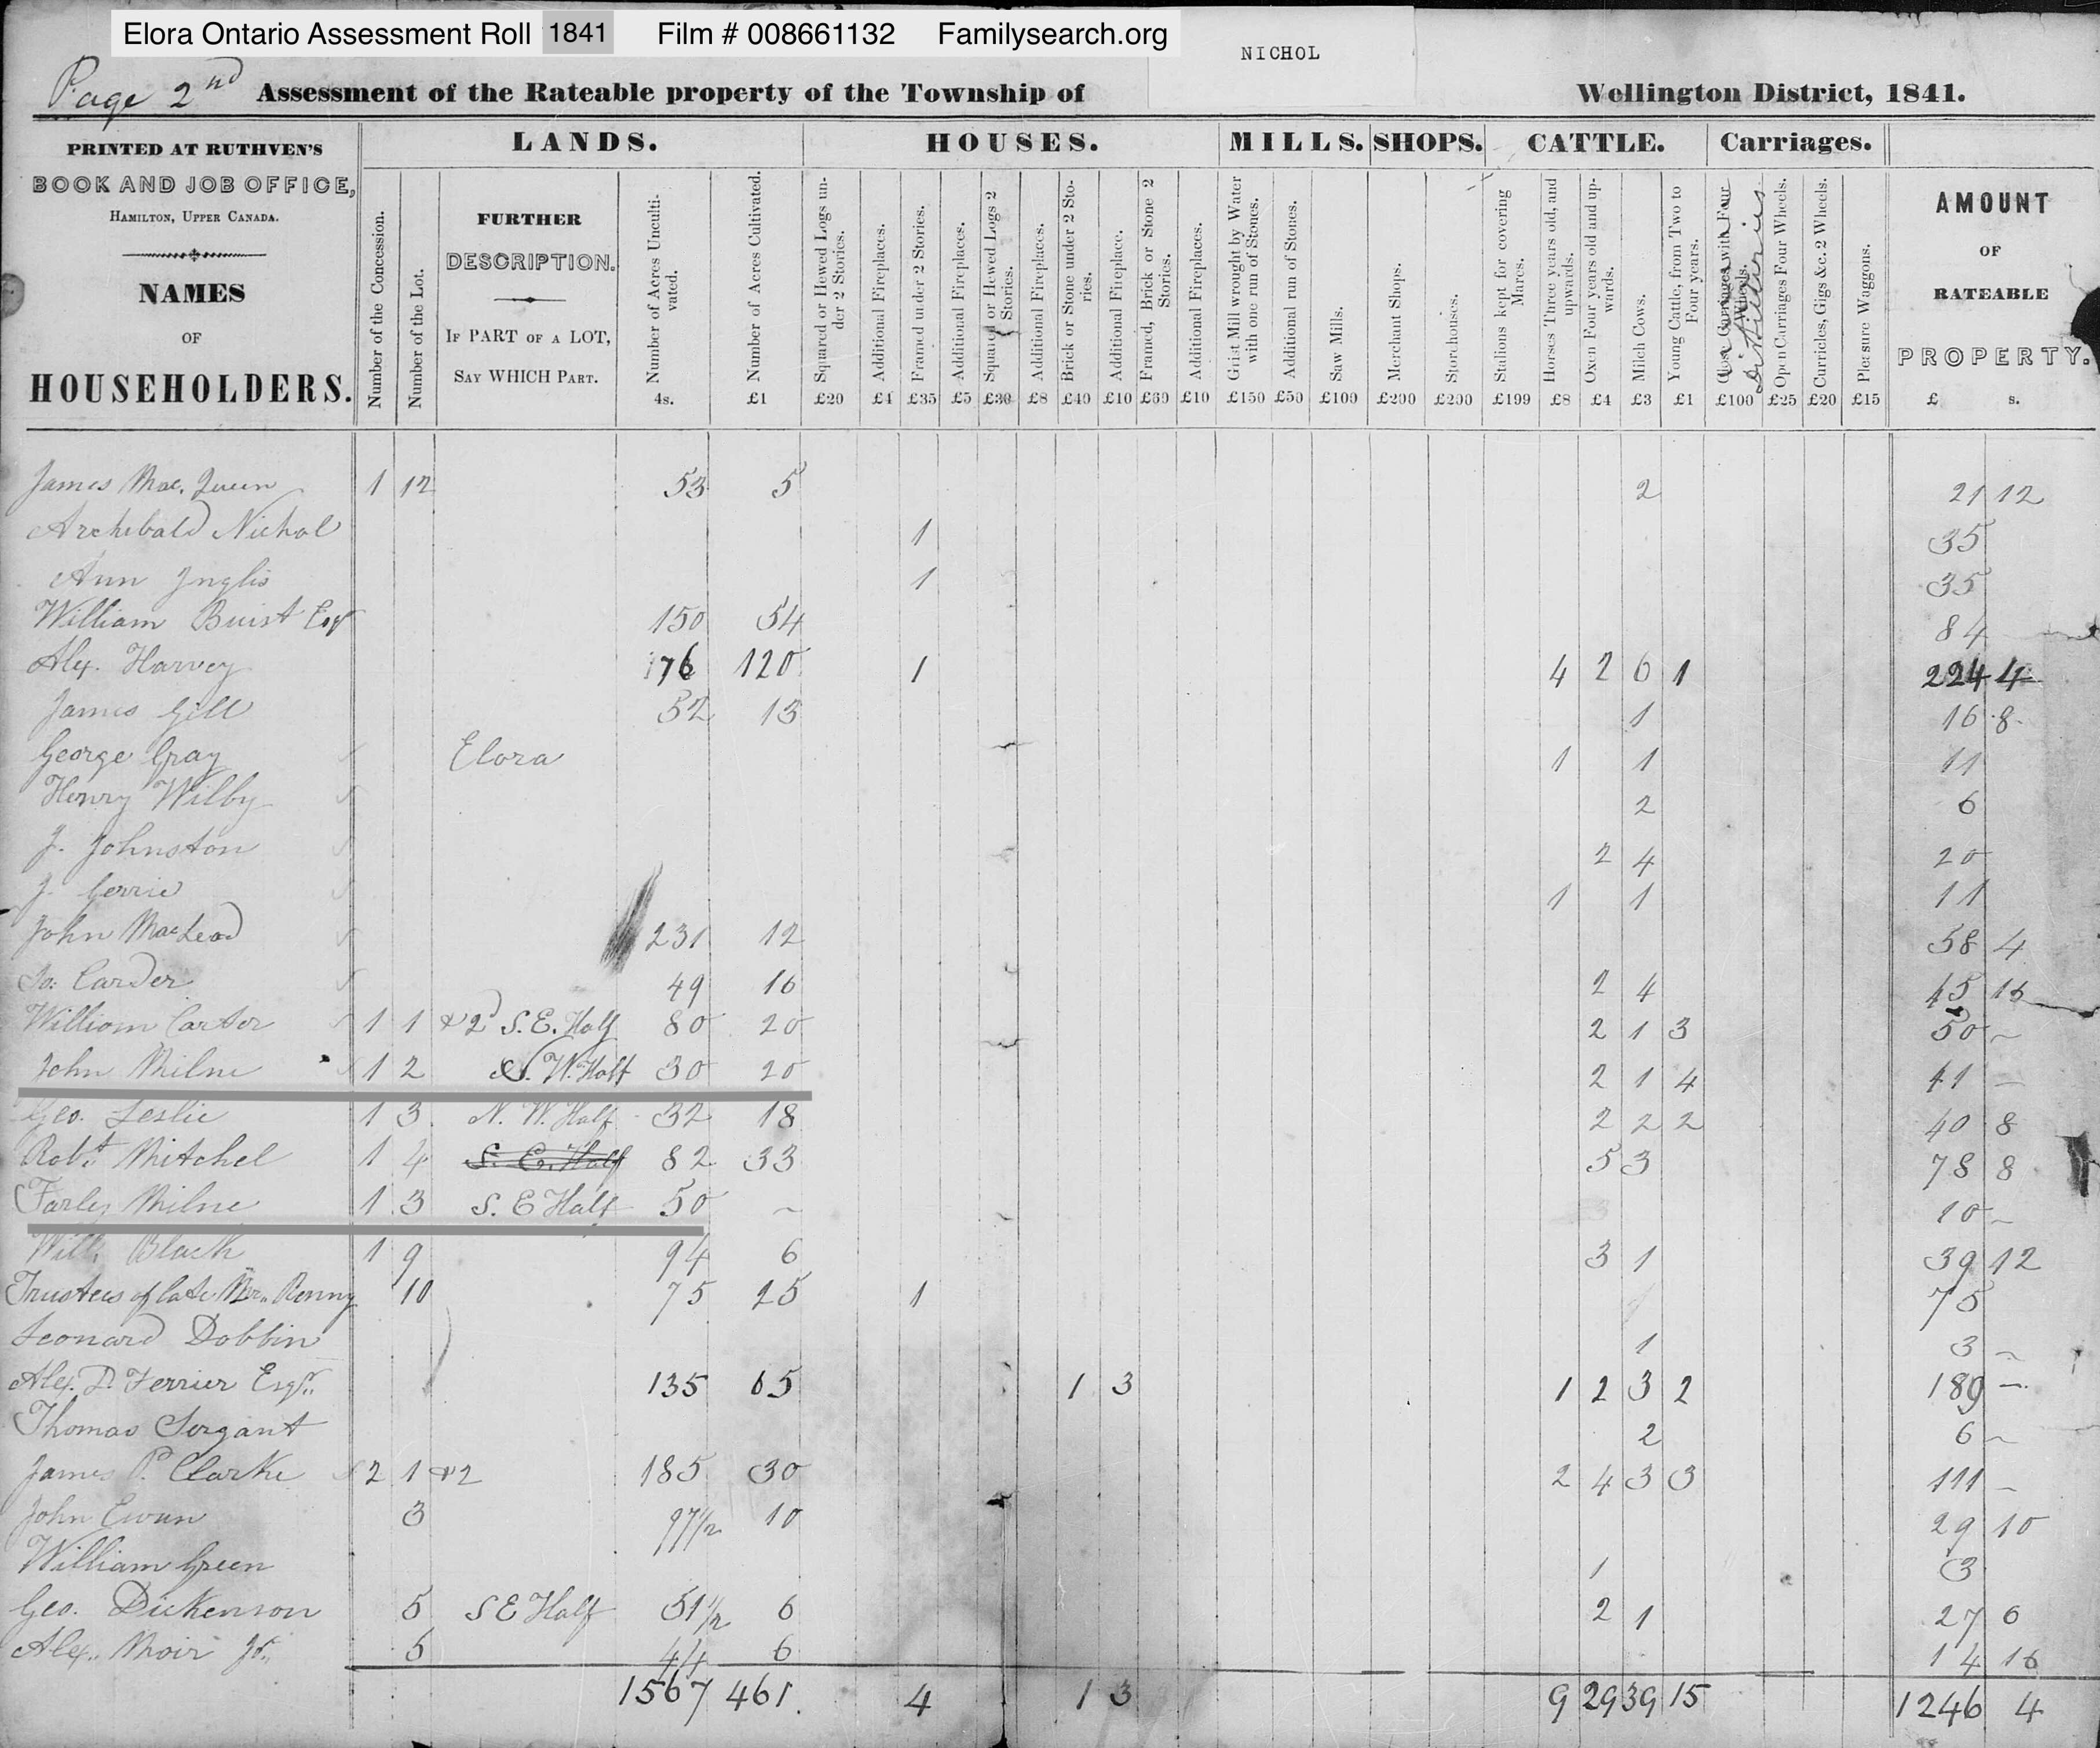 Elora Ontario Assessment Roll 1841 Film # 008661132 Familysearch.org
NICHOL
Page 2nd Assessment of the Rateable property of the Township of Wellington District, 1841.
PRINTED AT RUTHVEN'S
BOOK AND JOB OFFICE,
HAMILTON, UPPER CANADA.
NAMES
OF
HOUSEHOLDERS.
LANDS. HOUSES. MILLS. SHOPS. CATTLE. Carriages.
Number of the Concession.
Number of the Lot.
FURTHER
DESCRIPTION.
IF PART OF A LOT,
SAY WHICH PART.
Number of Acres Uncultivated. 4s.
Number of Acres Cultivated. £1
Squared or Hewed Logs under 2 Stories. £20
Additional Fireplaces. £4
Framed under 2 Stories. £35
Additional Fireplaces. £5
Squared or Hewed Logs 2 Stories. £30
Additional Fireplaces. £8
Brick or Stone under 2 Stories. £40
Additional Fireplace. £10
Framed, Brick or Stone 2 Stories. £60
Additional Fireplaces. £10
Grist Mill wrought by Water with one run of Stones. £150
Additional run of Stones. £50
Saw Mills. £100
Merchant Shops. £200
Storehouses. £200
Stallions kept for covering Mares. £199
Horses Three years old, and upwards. £8
Oxen Four years old and upwards. £4
Milch Cows. £3
Young Cattle, from Two to Four years. £1
Close Carriages with Four Wheels. £100
Distilleries
Open Carriages Four Wheels. £25
Curricles, Gigs &c. 2 Wheels. £20
Pleasure Waggons. £15
AMOUNT
OF
RATEABLE
PROPERTY.
£ s.
James Mac. Queen 1 12 53 5 2 21 12
Archibald Nichol 1 35
Ann Inglis 1 35
William Buist Esqr 150 54 84
Alex. Harvey 176 120 1 4 2 6 1 224 4
James Gill 32 13 1 16 8
George Gray Elora 1 1 11
Henry Wilby 2 6
J. Johnston 2 4 20
J. Gerrie 1 1 11
John MacLeod 231 12 58 4
Jo: Carder 49 16 2 4 45 16
William Carter 1 1 &2 S.E. Half 80 20 2 1 3 50 ~
John Milne 1 2 N.W. Half 30 20 2 1 4 41 —
Geo. Leslie 1 3 N.W. Half 32 18 2 2 2 40 8
Robt. Mitchel 1 4 S.E. Half 82 33 5 3 78 8
Farley Milne 1 3 S.E Half 50 ~ 10 ~
Will. Black 1 9 94 6 3 1 39 12
Trustees of late Mr. Renny 10 75 25 1 75
Leonard Dobbin 1 3 ~
Alex. D. Ferrier Esqr. 135 65 1 3 1 2 3 2 189 —
Thomas Sergant 2 6 ~
James P. Clarke 2 1 &2 185 30 2 4 3 3 111 —
John Ewen 3 97½ 10 29 10
William Green 1 3
Geo. Dickenson 5 SE Half 51½ 6 2 1 27 6
Alex. Moir Jr. 5 44 6 14 16
1567 461 4 1 3 9 29 39 15 1246 4